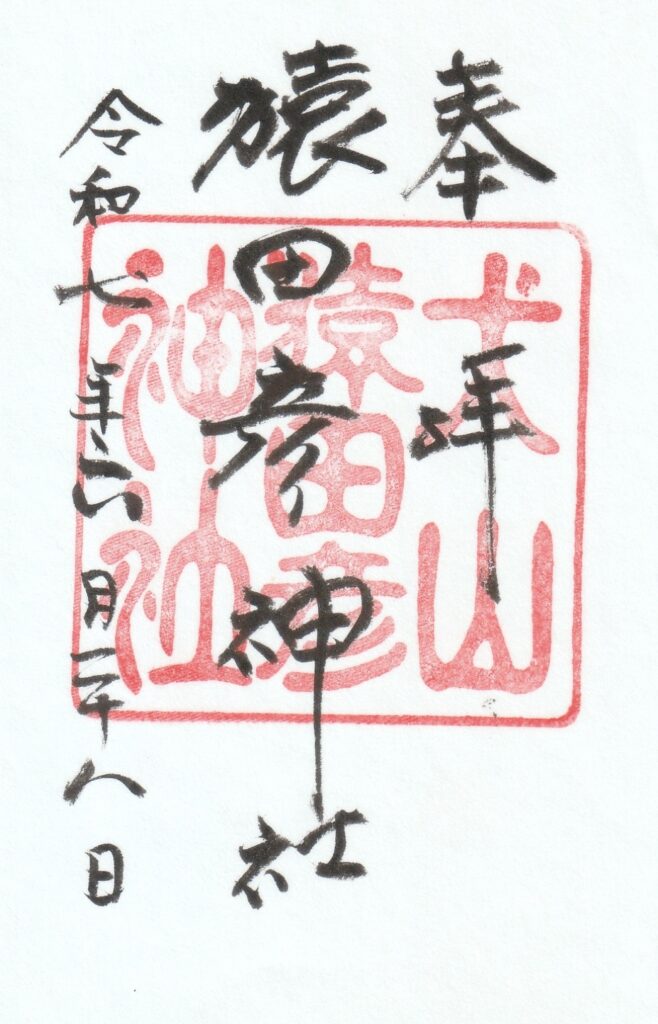 奉拝
猿田彦神社
令和七年六月二十八日
犬山
猿田彦
神社